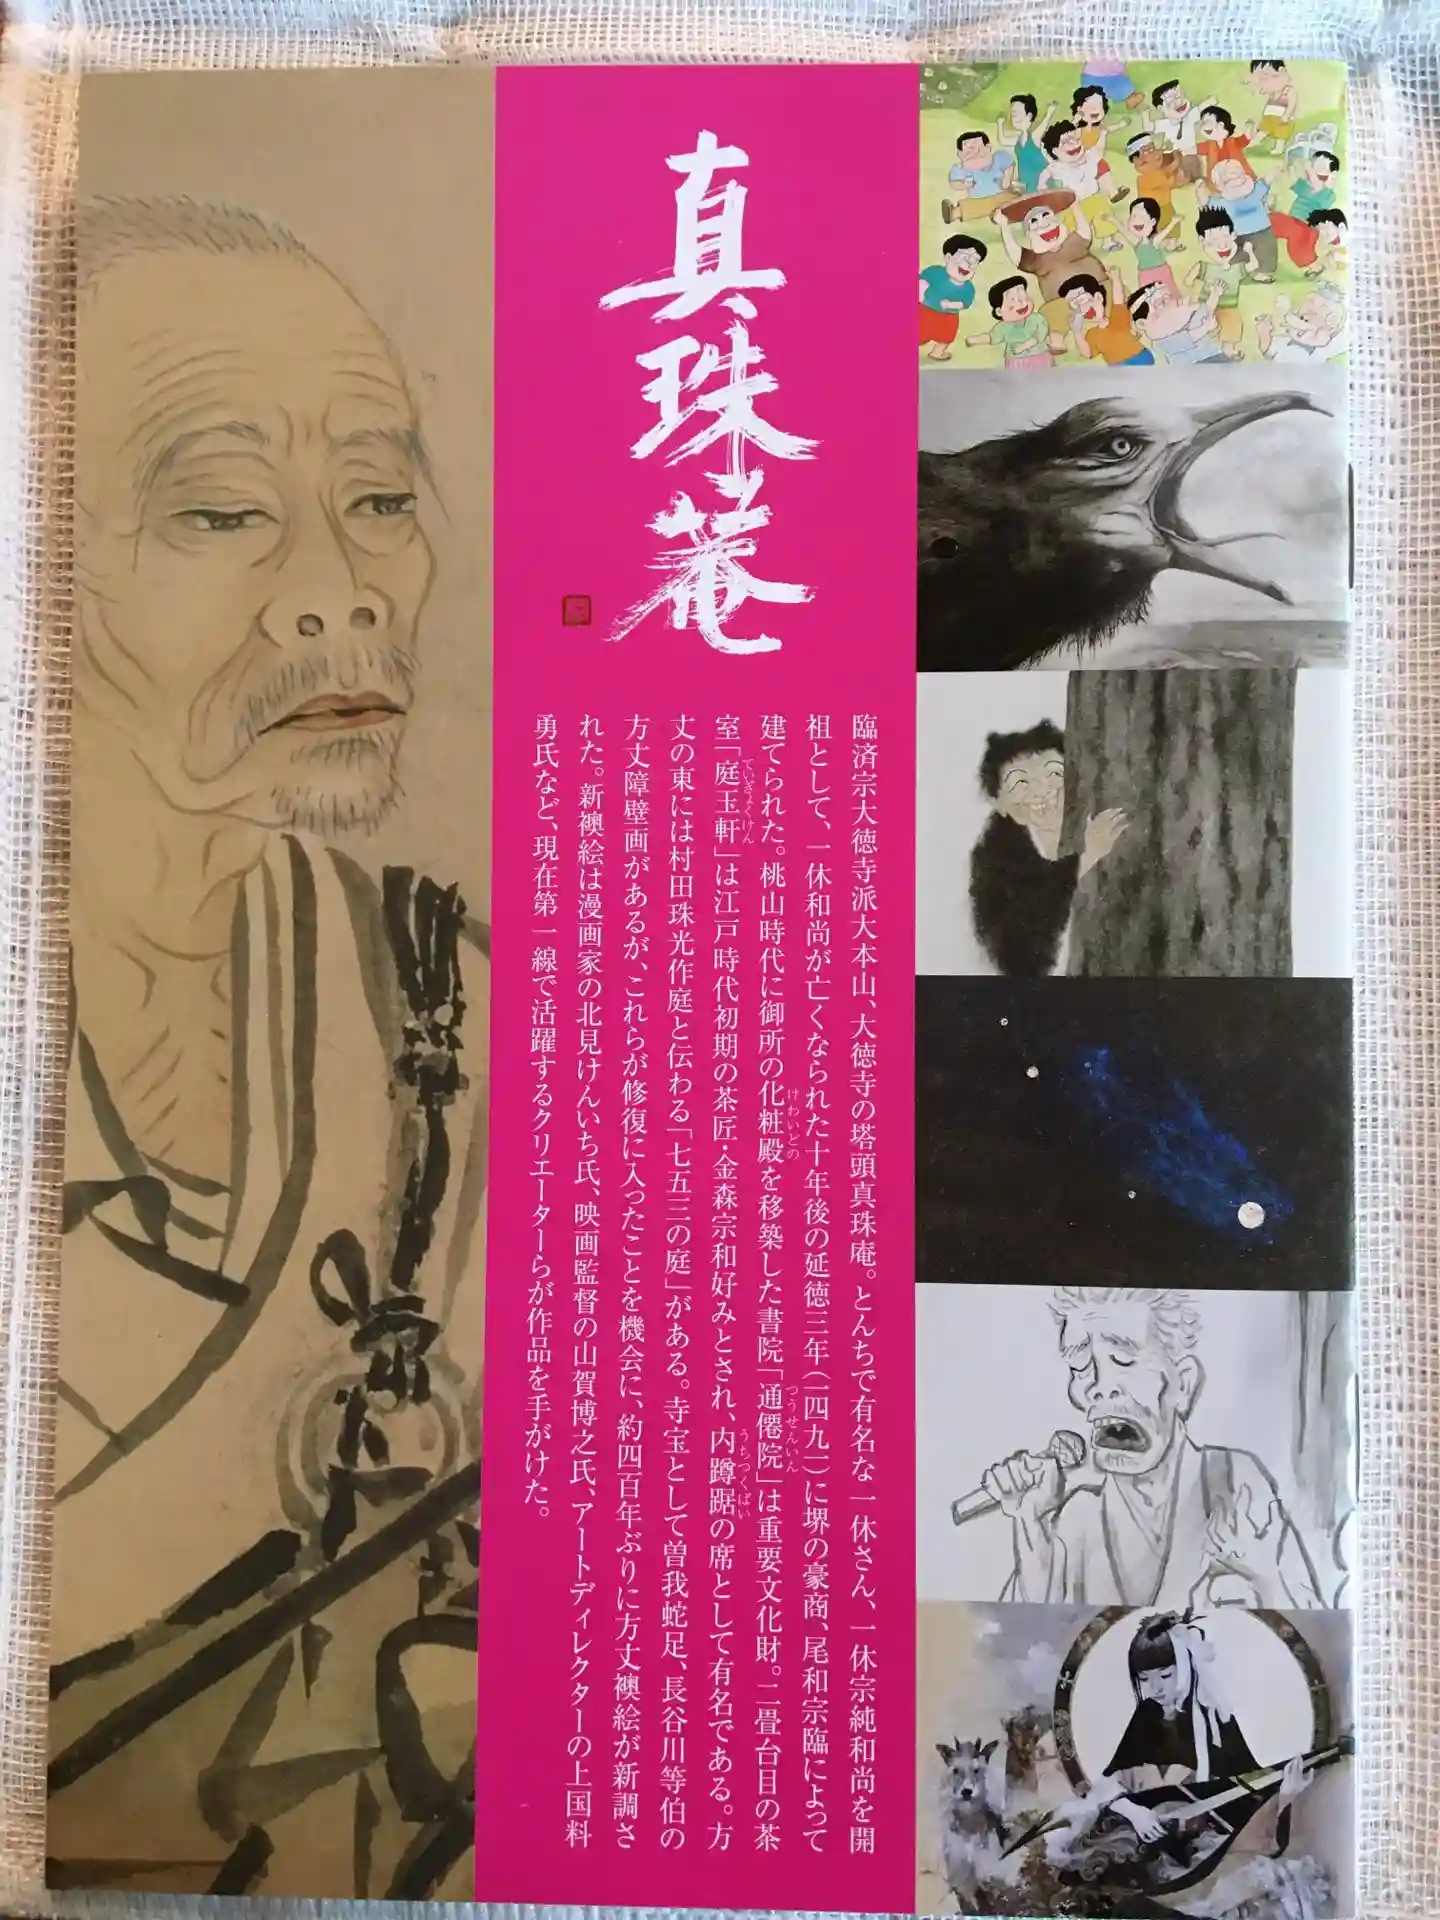 真珠菴
臨済宗大徳寺派大本山、大徳寺の塔頭真珠庵。とんちで有名な一休さん、一休宗純和尚を開
祖として、一休和尚が亡くなられた十年後の延徳三年(一四九一)に堺の豪商、尾和宗臨によって
建てられた。桃山時代に御所の化粧殿を移築した書院「通僊院」は重要文化財。二畳台目の茶
けわいどの
つうせんいん
室「庭玉軒」は江戸時代初期の茶匠・金森宗和好みとされ、内蹲踞の席として有名である。方
ていぎょくけん
うちつくばい
丈の東には村田珠光作庭と伝わる「七五三の庭」がある。寺宝として曽我蛇足、長谷川等伯の
方丈障壁画があるが、これらが修復に入ったことを機会に、約四百年ぶりに方丈襖絵が新調さ
れた。新襖絵は漫画家の北見けんいち氏、映画監督の山賀博之氏、アートディレクターの上国料
勇氏など、現在第一線で活躍するクリエーターらが作品を手がけた。